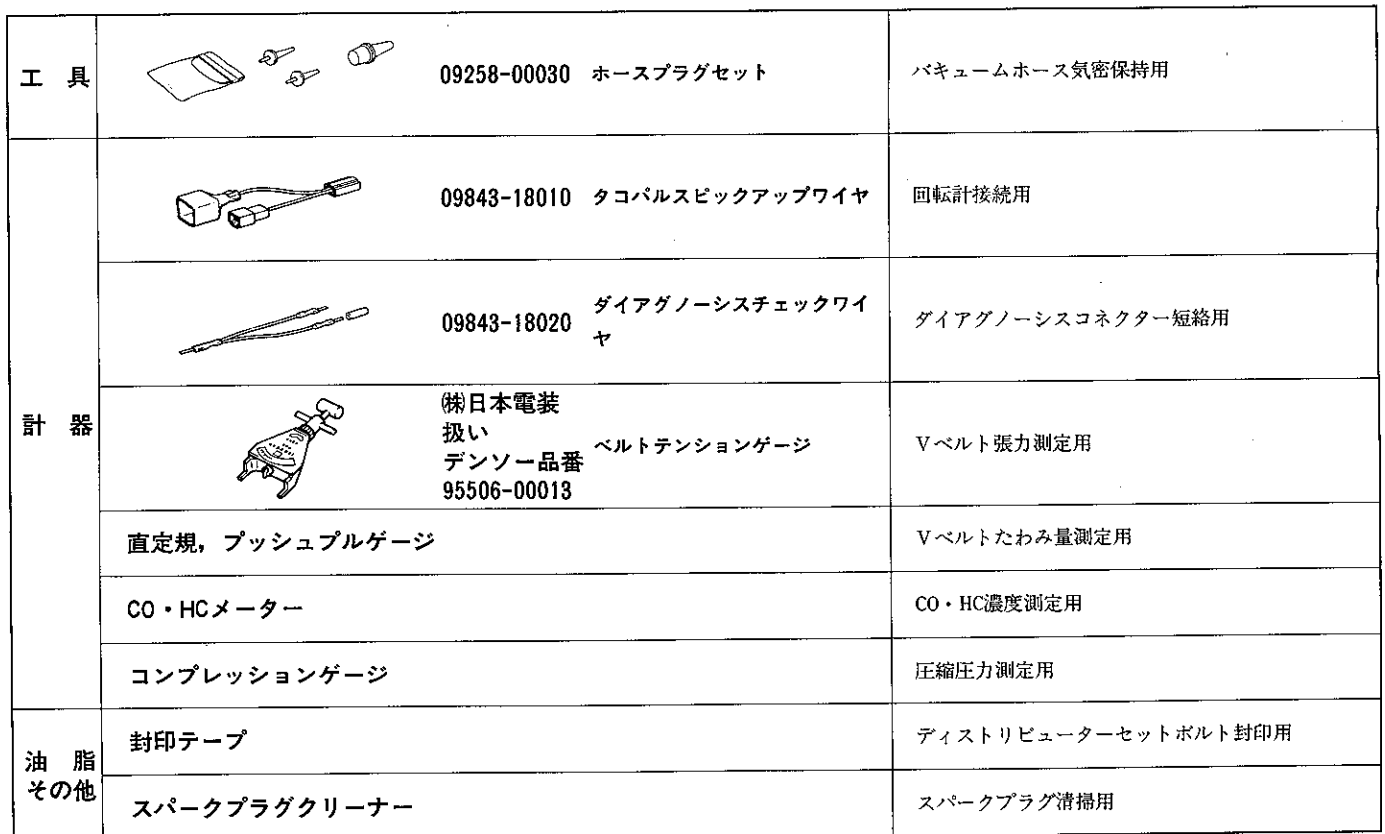 工 具
09258-00030 ホースプラグセット
バキュームホース気密保持用
計 器
09843-18010 タコパルスピックアップワイヤ
回転計接続用
09843-18020 ダイアグノーシスチェックワイ
ヤ
ダイアグノーシスコネクター短絡用
㈱日本電装
扱い
デンソー品番
95506-00013
ベルトテンションゲージ
Vベルト張力測定用
直定規，プッシュプルゲージ
Vベルトたわみ量測定用
CO・HCメーター
CO・HC濃度測定用
コンプレッションゲージ
圧縮圧力測定用
油 脂
その他
封印テープ
ディストリビューターセットボルト封印用
スパークプラグクリーナー
スパークプラグ清掃用